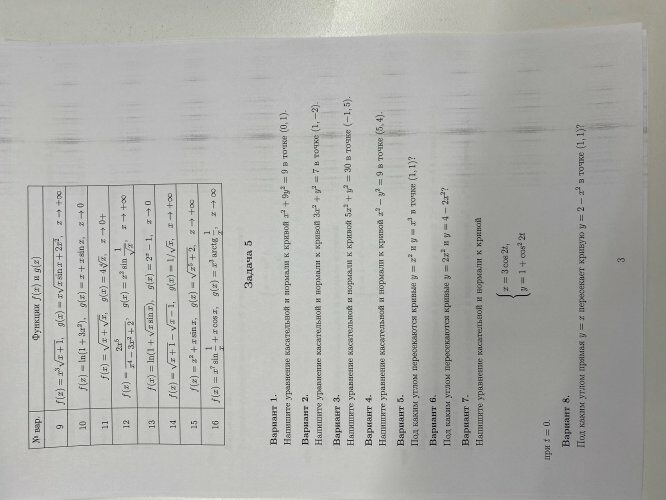 № вар. Функции f(x) и g(x)
9 f(x) = x³√(x + 1), g(x) = x√(x sin x + 2x²), x → +∞
10 f(x) = ln(1 + 3x²), g(x) = x + x sin x, x → 0
11 f(x) = √(x + √x), g(x) = 4∜x, x → 0+
12 f(x) = 2x⁶/(x⁴ − 3x² + 2), g(x) = x² sin 1/√x, x → +∞
13 f(x) = ln(1 + √x sin x), g(x) = 2ˣ − 1, x → 0
14 f(x) = √(x + 1) − √(x − 1), g(x) = 1/√x, x → +∞
15 f(x) = x² + x sin x, g(x) = √(x⁵ + 2), x → +∞
16 f(x) = x² sin 1/x + x cos x, g(x) = x³ arctg 1/x, x → ∞
Задача 5
Вариант 1.
Напишите уравнение касательной и нормали к кривой x² + 9y² = 9 в точке (0, 1).
Вариант 2.
Напишите уравнение касательной и нормали к кривой 3x² + y² = 7 в точке (1, −2).
Вариант 3.
Напишите уравнение касательной и нормали к кривой 5x² + y² = 30 в точке (−1, 5).
Вариант 4.
Напишите уравнение касательной и нормали к кривой x² − y² = 9 в точке (5, 4).
Вариант 5.
Под каким углом пересекаются кривые y = x² и y = x³ в точке (1, 1)?
Вариант 6.
Под каким углом пересекаются кривые y = 2x² и y = 4 − 2x²?
Вариант 7.
Напишите уравнение касательной и нормали к кривой
{ x = 3 cos 2t,
y = 1 + cos² 2t
при t = 0.
Вариант 8.
Под каким углом прямая y = x пересекает кривую y = 2 − x² в точке (1, 1)?
3